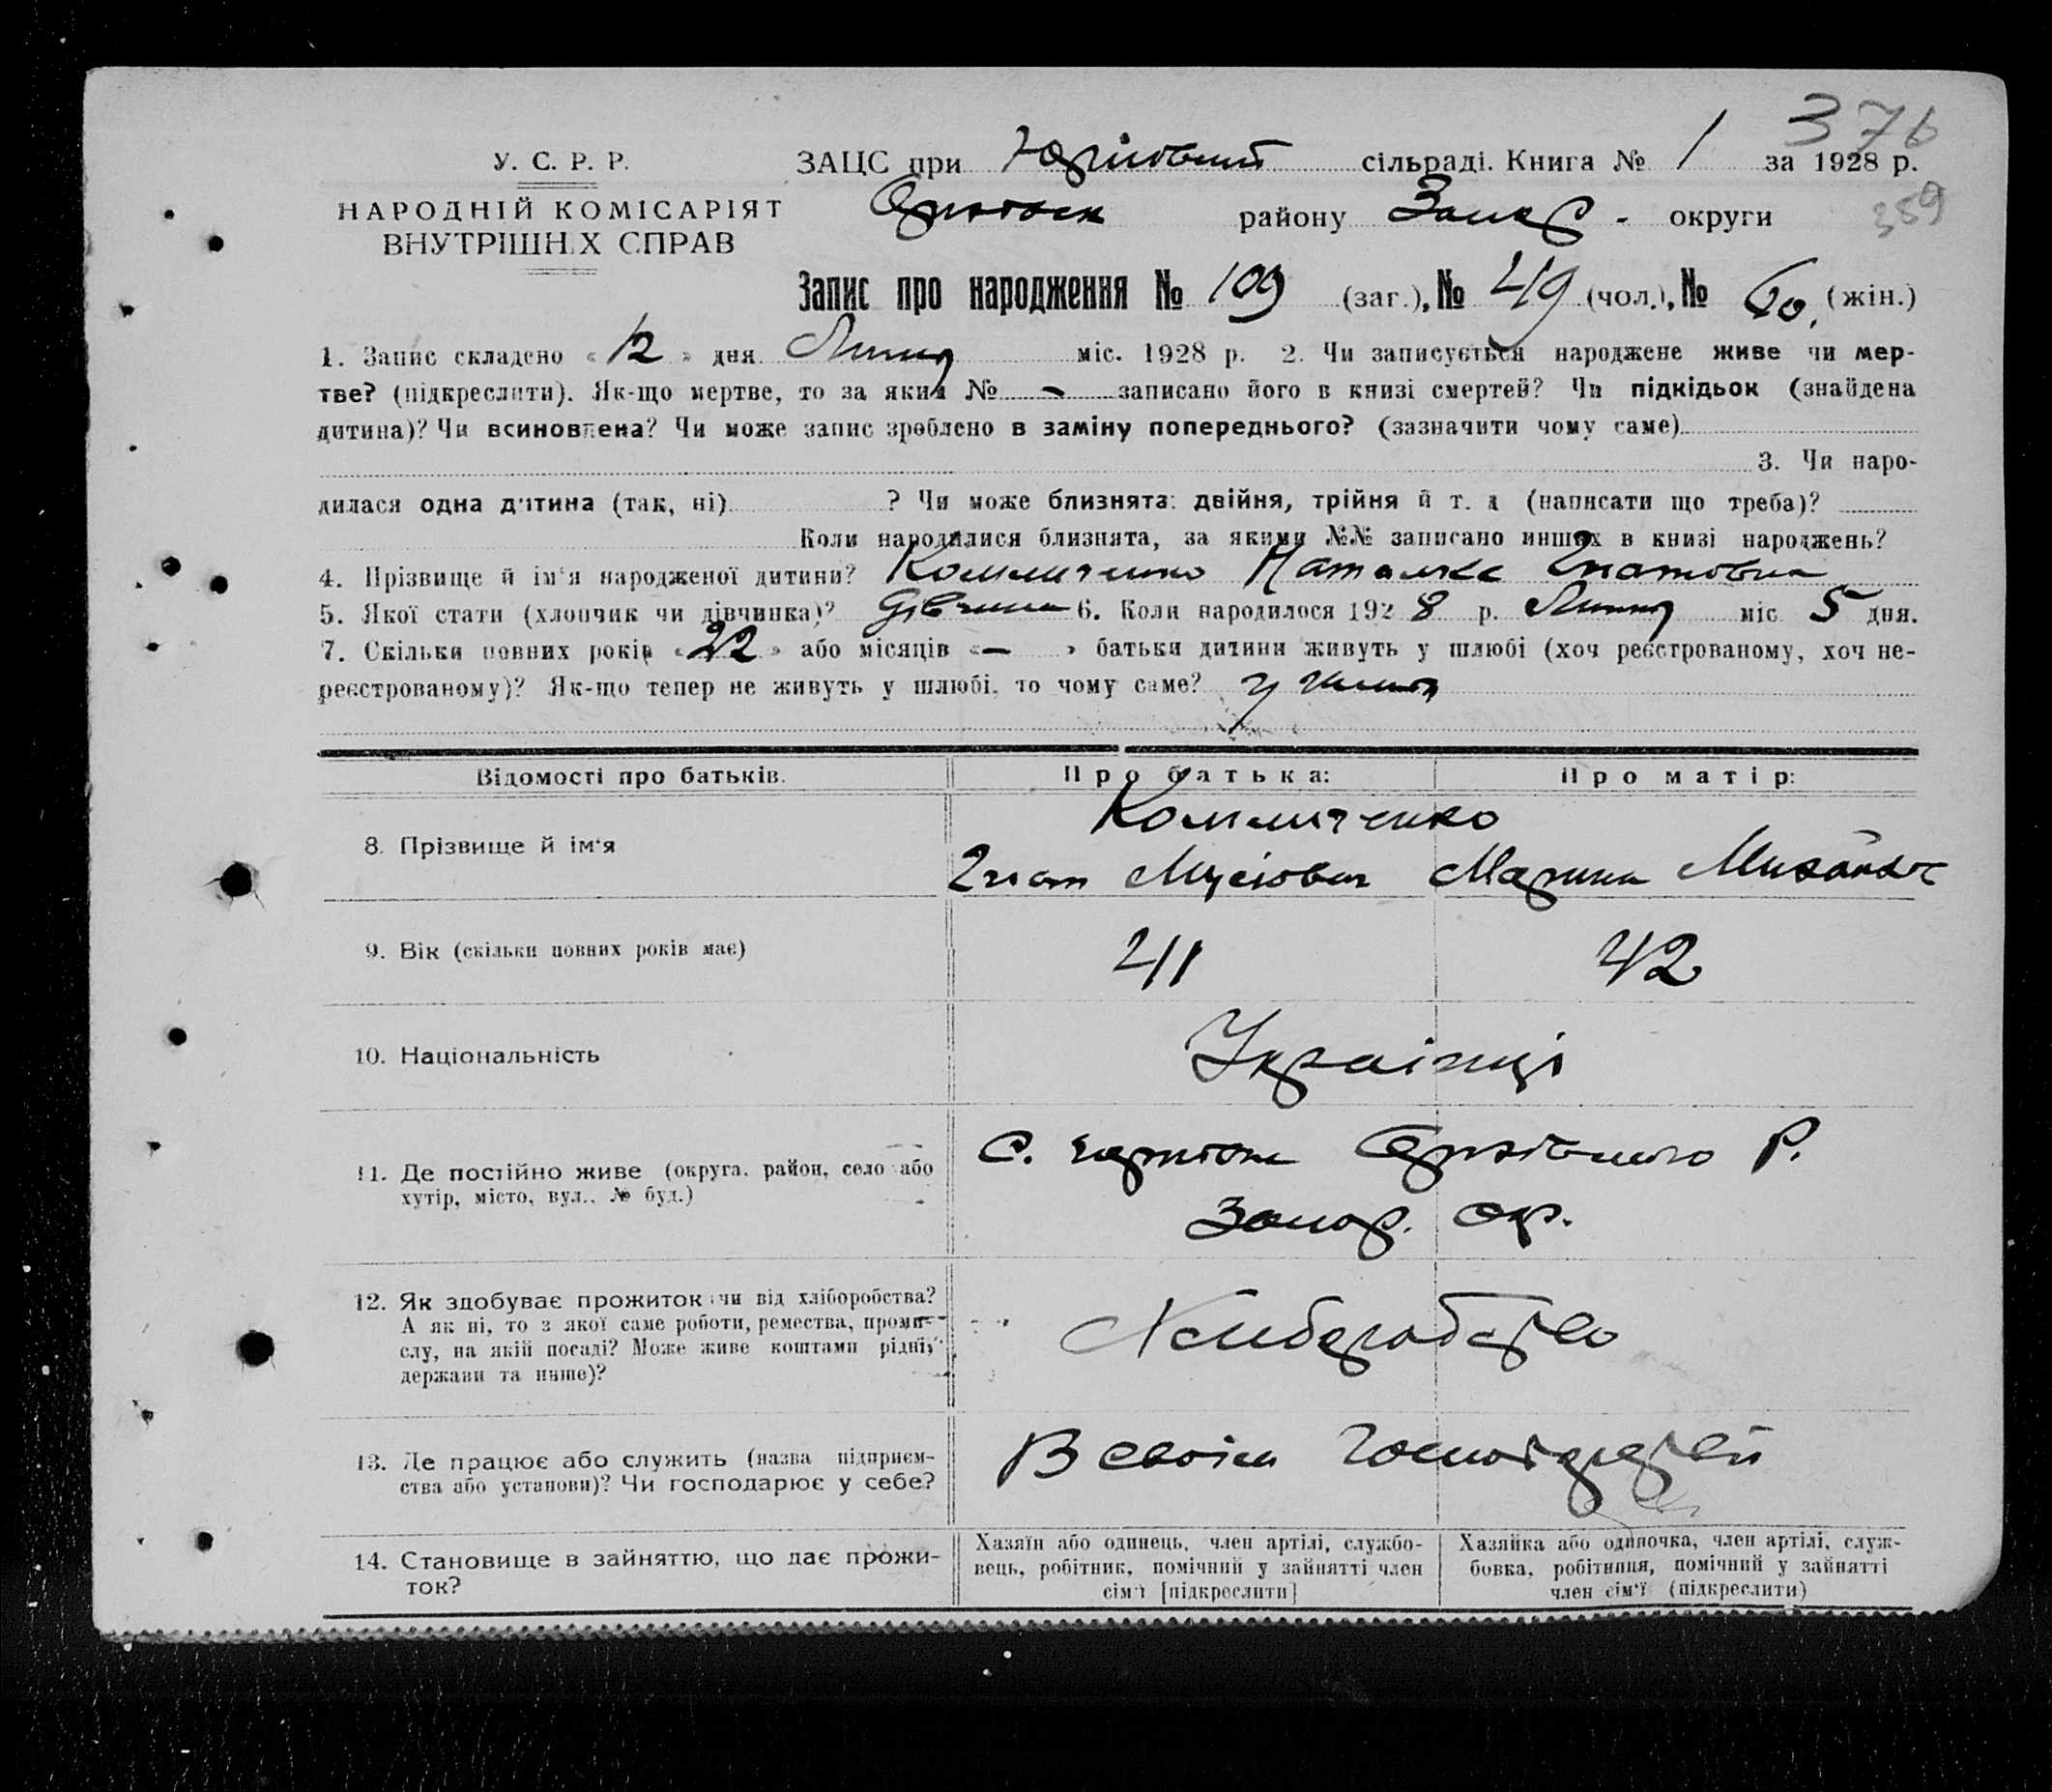 376
У. С. Р. Р. ЗАЦС при Юрківській сільраді. Книга № 1 за 1928 р.
НАРОДНІЙ КОМІСАРІЯТ Оріхівськ району Запор. округи 359
ВНУТРІШНІХ СПРАВ
Запис про народження № 109 (заг.), № 49 (чол.), № 60. (жін.)
1. Запис складено « 12 » дня Липня міс. 1928 р. 2. Чи записується народжене живе чи мер-
тве? (підкреслити). Як-що мертве, то за яким № — записано його в книзі смертей? Чи підкідьок (знайдена
дитина)? Чи всиновлена? Чи може запис зроблено в заміну попереднього? (зазначити чому саме)
3. Чи наро-
дилася одна дитина (так, ні) ? Чи може близнята: двійня, трійня й т. д. (написати що треба)?
Коли народилися близнята, за якими №№ записано инших в книзі народжень?
4. Прізвище й ім'я народженої дитини? Наталка Гнатовна
5. Якої стати (хлопчик чи дівчинка)? Дівчина 6. Коли народилося 1928 р. Липня міс 5 дня.
7. Скільки повних років « 22 » або місяців « — » батьки дитини живуть у шлюбі (хоч реєстрованому, хоч не-
реєстрованому)? Як-що тепер не живуть у шлюбі, то чому саме? у шлюбі
Відомості про батьків. Про батька: Про матір:
8. Прізвище й ім'я
Гнат Мусієвич Марина
9. Вік (скільки повних років має) 41 42
10. Національність Українці
11. Де постійно живе (округа, район, село або
хутір, місто, вул., № буд.)
С. Оріхівського Р.
Запор. окр.
12. Як здобуває прожиток чи від хліборобства?
А як ні, то з якої саме роботи, ремества, проми-
слу, на якій посаді? Може живе коштами рідні,
держави та инше)?
Хліборобство
13. Де працює або служить (назва підприєм-
ства або установи)? Чи господарює у себе?
В своїм господарстві
14. Становище в зайняттю, що дає прожи-
ток?
Хазяїн або одинець, член артілі, службо-
вець, робітник, помічний у зайнятті член
сім'ї [підкреслити]
Хазяйка або одиночка, член артілі, служ-
бовка, робітниця, помічний у зайнятті
член сім'ї (підкреслити)